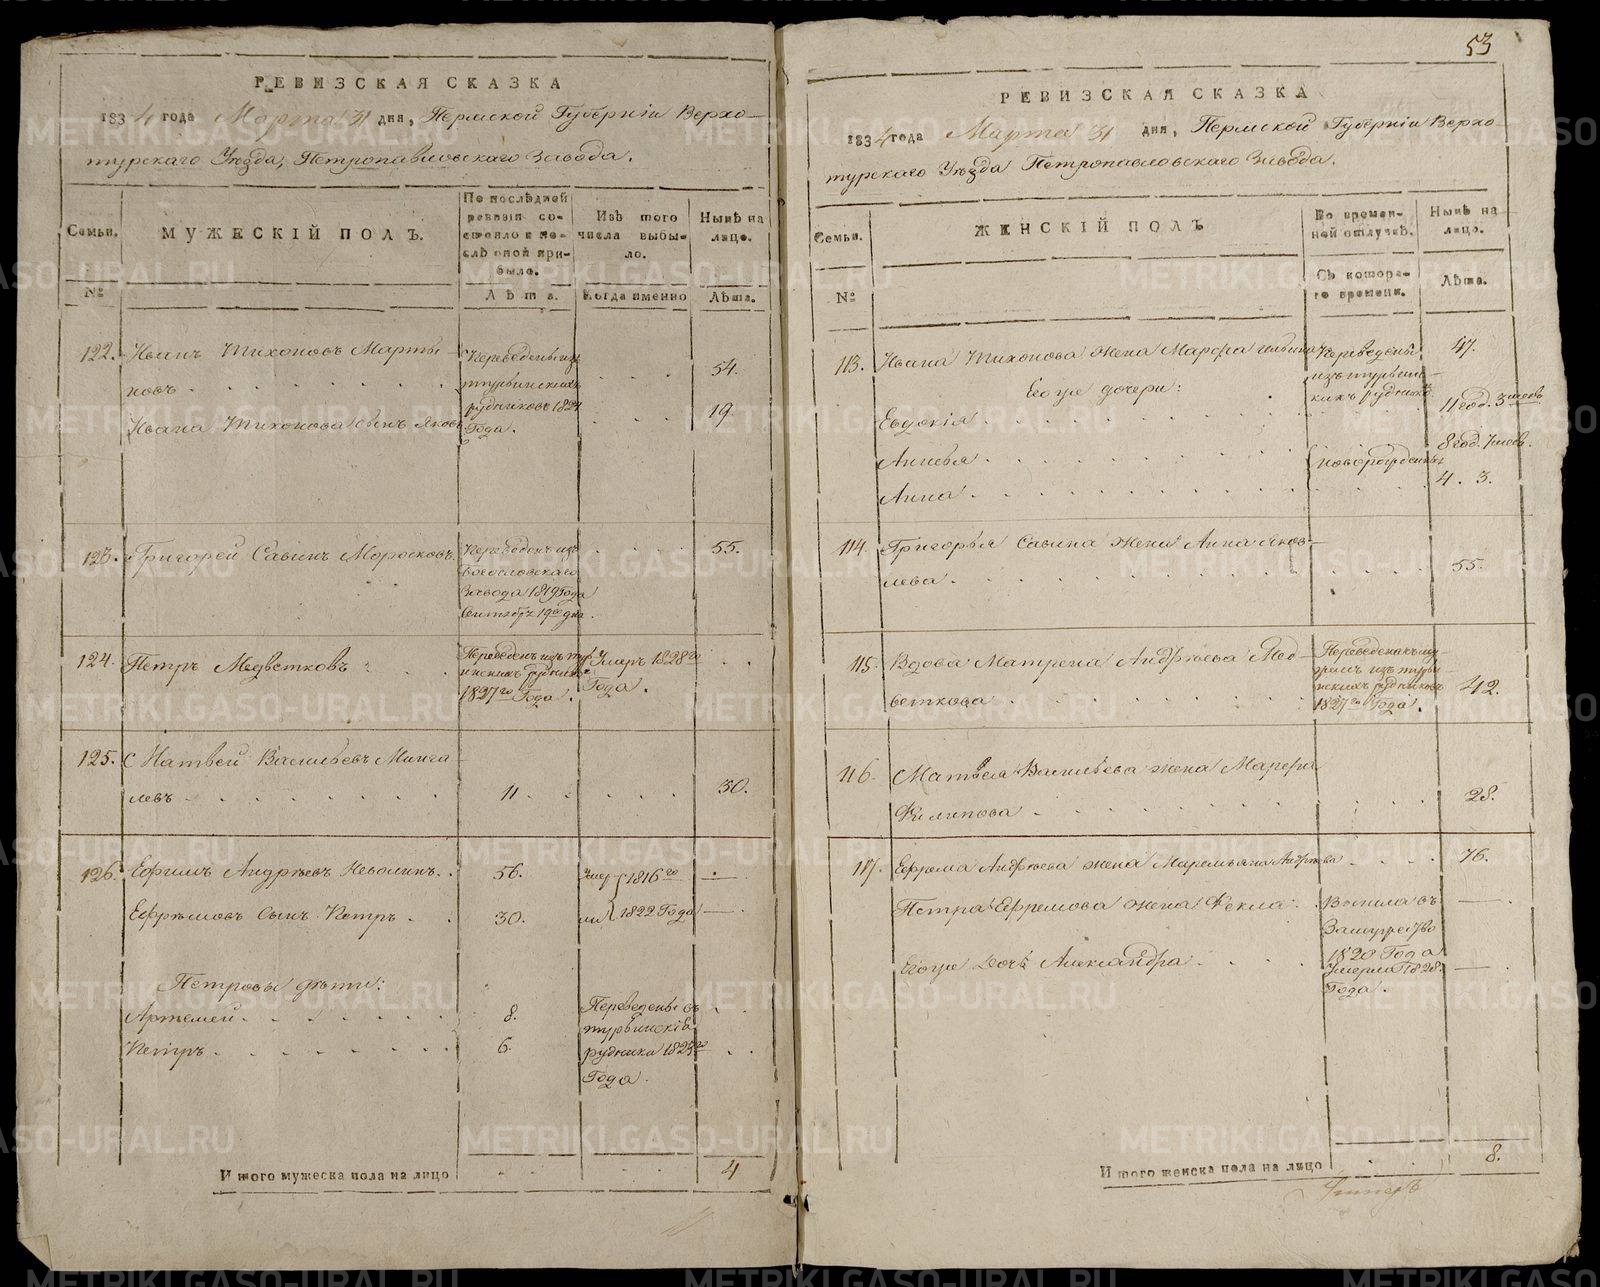 РЕВИЗСКАЯ СКАЗКА
1834 года Марта 31 дня, Пермской Губерніи Верхо-
турскаго Уѣзда, Петропавловскаго Завода.
Семьи.
МУЖЕСКІЙ ПОЛЪ.
По послѣдней
ревизіи со-
стояло и по-
слѣ оной при-
было.
Изъ того
числа выбы-
ло.
Нынѣ на
лицо.
№
Лѣта.
Когда именно
Лѣта.
122. Иванъ Тихоновъ Марты-
новъ
Переведены изъ
турьинскихъ
рудниковъ 1824
Года.
54.
Ивана Тихонова сынъ Яковъ
19.
123. Григорей Савинъ Морасковъ
Переведенъ изъ
Богословскаго
Завода 1819 Года
Сентября 19го дня.
55.
124. Петръ Медветковъ
Переведенъ изъ тур-
инскихъ рудниковъ
1827го Года.
Умеръ 1828го
Года.
125. Матвей Васильевъ Минга-
левъ
11
30.
126. Ефимъ Андрѣевъ Неволинъ
56.
Умер- 1816го
Ефрѣмовъ Сынъ Петръ
30.
ли 1822 Года
Петровы дѣти:
Артемей
8.
Петръ
6.
Переведены въ
турьинскіе
рудники 1823го
Года.
Итого мужеска пола на лицо
4
53
РЕВИЗСКАЯ СКАЗКА
1834 года Марта 31 дня, Пермской Губерніи Верхо-
турскаго Уѣзда Петропавловскаго Завода.
Семьи.
ЖЕНСКІЙ ПОЛЪ
Во времен-
ной отлучкѣ.
Нынѣ на
лицо.
№
Съ котора-
го времени.
Лѣта.
113. Ивана Тихонова жена Марфа
Переведены
изъ турьинс-
кихъ рудников
47.
Его же дочери:
Евдокія
11 год. 3 месяц
Анисья
8 год. 7 месв.
новорожденны
Анна
4. 3.
114. Григорья Савина жена Анна Яков-
лева
55.
115. Вдова Матрена Андрѣева Мед-
веткова
Переведена къ му-
жемъ изъ турьи-
нскихъ рудниковъ
1827го Года.
42.
116. Матвея Васильева жена Марфа
Филипова
28.
117. Ефрема Андрѣева жена Маремьяна Андрѣева
76.
Петра Ефремова жена Фекла
Вышла въ
Замужество
1820 Года
Егоже Дочь Александра
Умерла 1828.
Года.
Итого женска пола на лицо
8.
METRIKI.GASO-URAL.RU